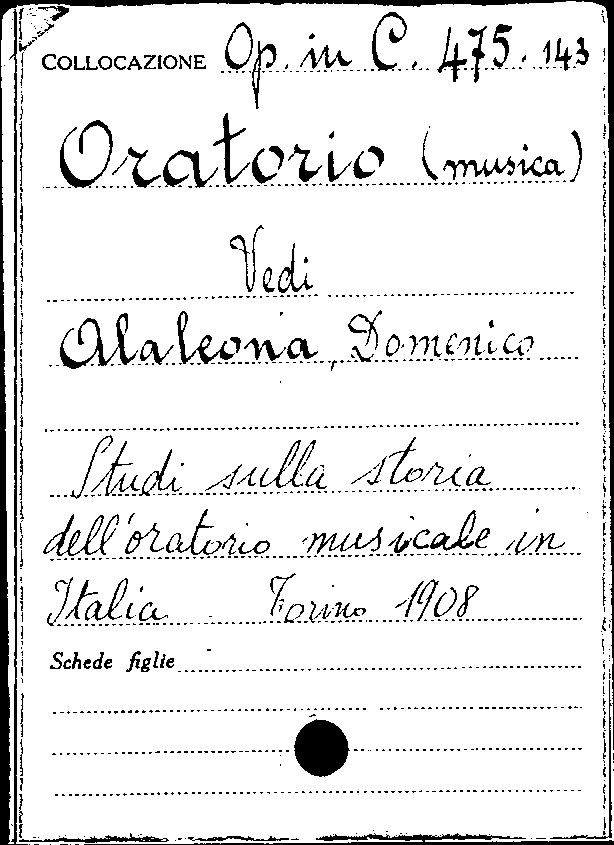 COLLOCAZIONE Op. in C. 475. 143
Oratorio (musica)
Vedi
Alaleona, Domenico
Studi sulla storia
dell'oratorio musicale in
Italia. Torino 1908
Schede figlie